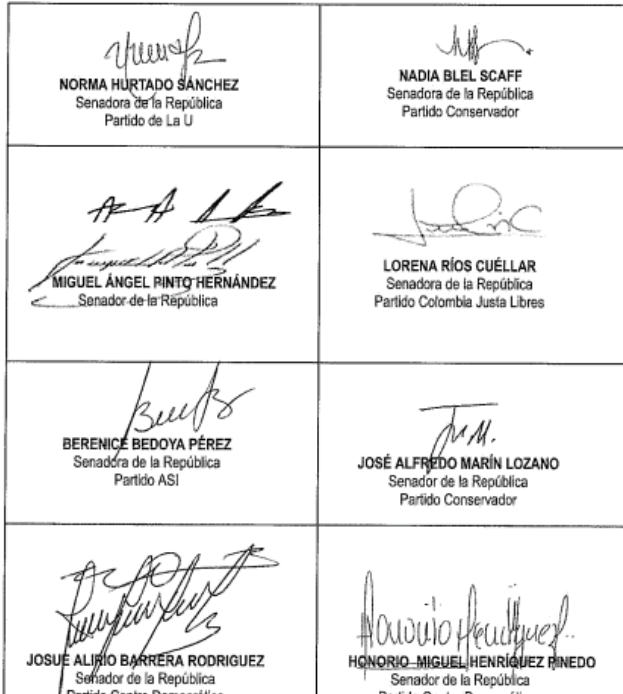 NORMA HURTADO SÁNCHEZ
Senadora de la República
Partido de La U
NADIA BLEL SCAFF
Senadora de la República
Partido Conservador
MIGUEL ÁNGEL PINTO HERNÁNDEZ
Senador de la República
LORENA RÍOS CUÉLLAR
Senadora de la República
Partido Colombia Justa Libres
BERENICE BEDOYA PÉREZ
Senadora de la República
Partido ASI
JOSÉ ALFREDO MARÍN LOZANO
Senador de la República
Partido Conservador
JOSUE ALIRIO BARRERA RODRIGUEZ
Senador de la República
Partido Centro Democrático
HONORIO MIGUEL HENRÍQUEZ PINEDO
Senador de la República
Partido Centro Democrático